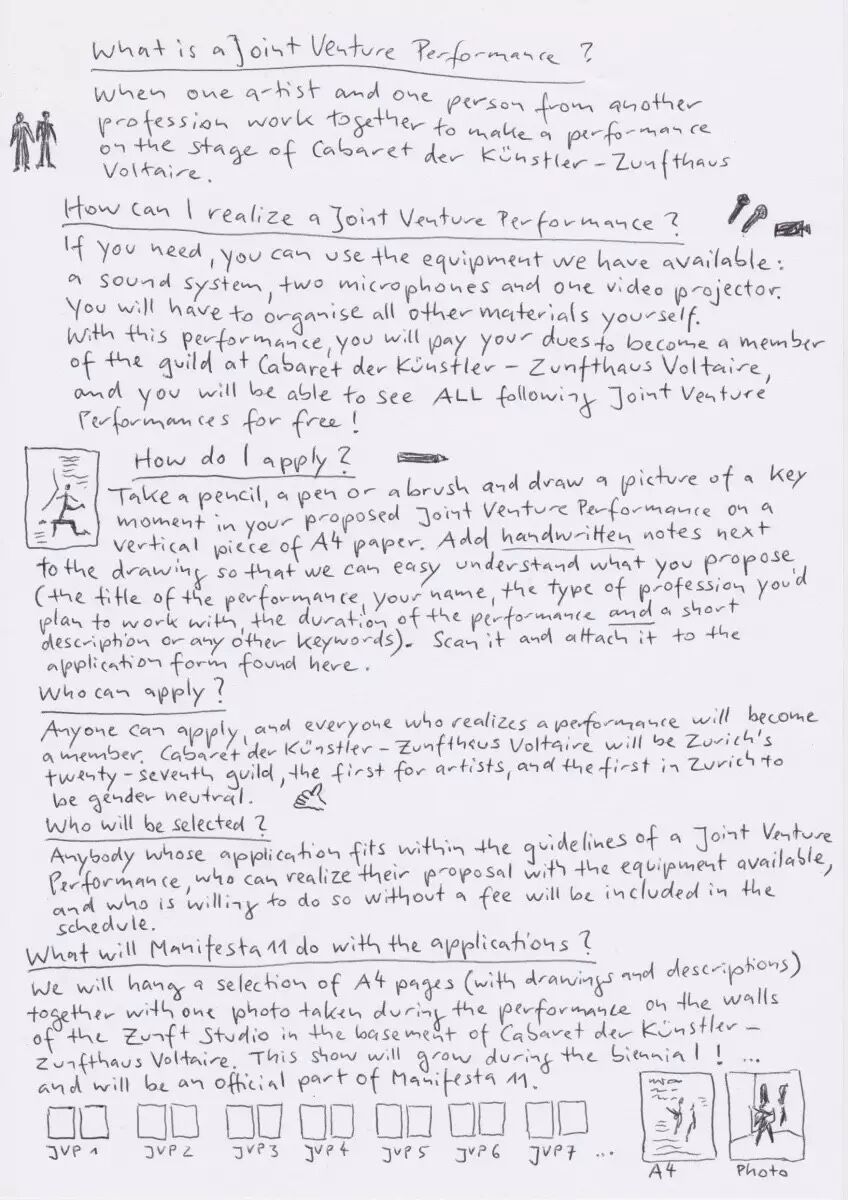 What is a Joint Venture Performance ?
When one artist and one person from another
profession work together to make a performance
on the stage of Cabaret der Künstler – Zunfthaus
Voltaire.
How can I realize a Joint Venture Performance ?
If you need, you can use the equipment we have available :
a sound system, two microphones and one video projector.
You will have to organise all other materials yourself.
With this performance, you will pay your dues to become a member
of the guild at Cabaret der Künstler – Zunfthaus Voltaire,
and you will be able to see ALL following Joint Venture
Performances for free !
How do I apply ?
Take a pencil, a pen or a brush and draw a picture of a key
moment in your proposed Joint Venture Performance on a
vertical piece of A4 paper. Add handwritten notes next
to the drawing so that we can easy understand what you propose
(the title of the performance, your name, the type of profession you'd
plan to work with, the duration of the performance and a short
description or any other keywords). Scan it and attach it to the
application form found here.
Who can apply ?
Anyone can apply, and everyone who realizes a performance will become
a member. Cabaret der Künstler – Zunfthaus Voltaire will be Zurich's
twenty-seventh guild, the first for artists, and the first in Zurich to
be gender neutral.
Who will be selected ?
Anybody whose application fits within the guidelines of a Joint Venture
Performance, who can realize their proposal with the equipment available,
and who is willing to do so without a fee will be included in the
schedule.
What will Manifesta 11 do with the applications ?
We will hang a selection of A4 pages (with drawings and descriptions)
together with one photo taken during the performance on the walls
of the Zunft Studio in the basement of Cabaret der Künstler –
Zunfthaus Voltaire. This show will grow during the biennial ! ...
and will be an official part of Manifesta 11.
JVP 1 JVP 2 JVP 3 JVP 4 JVP 5 JVP 6 JVP 7 ... A4 Photo